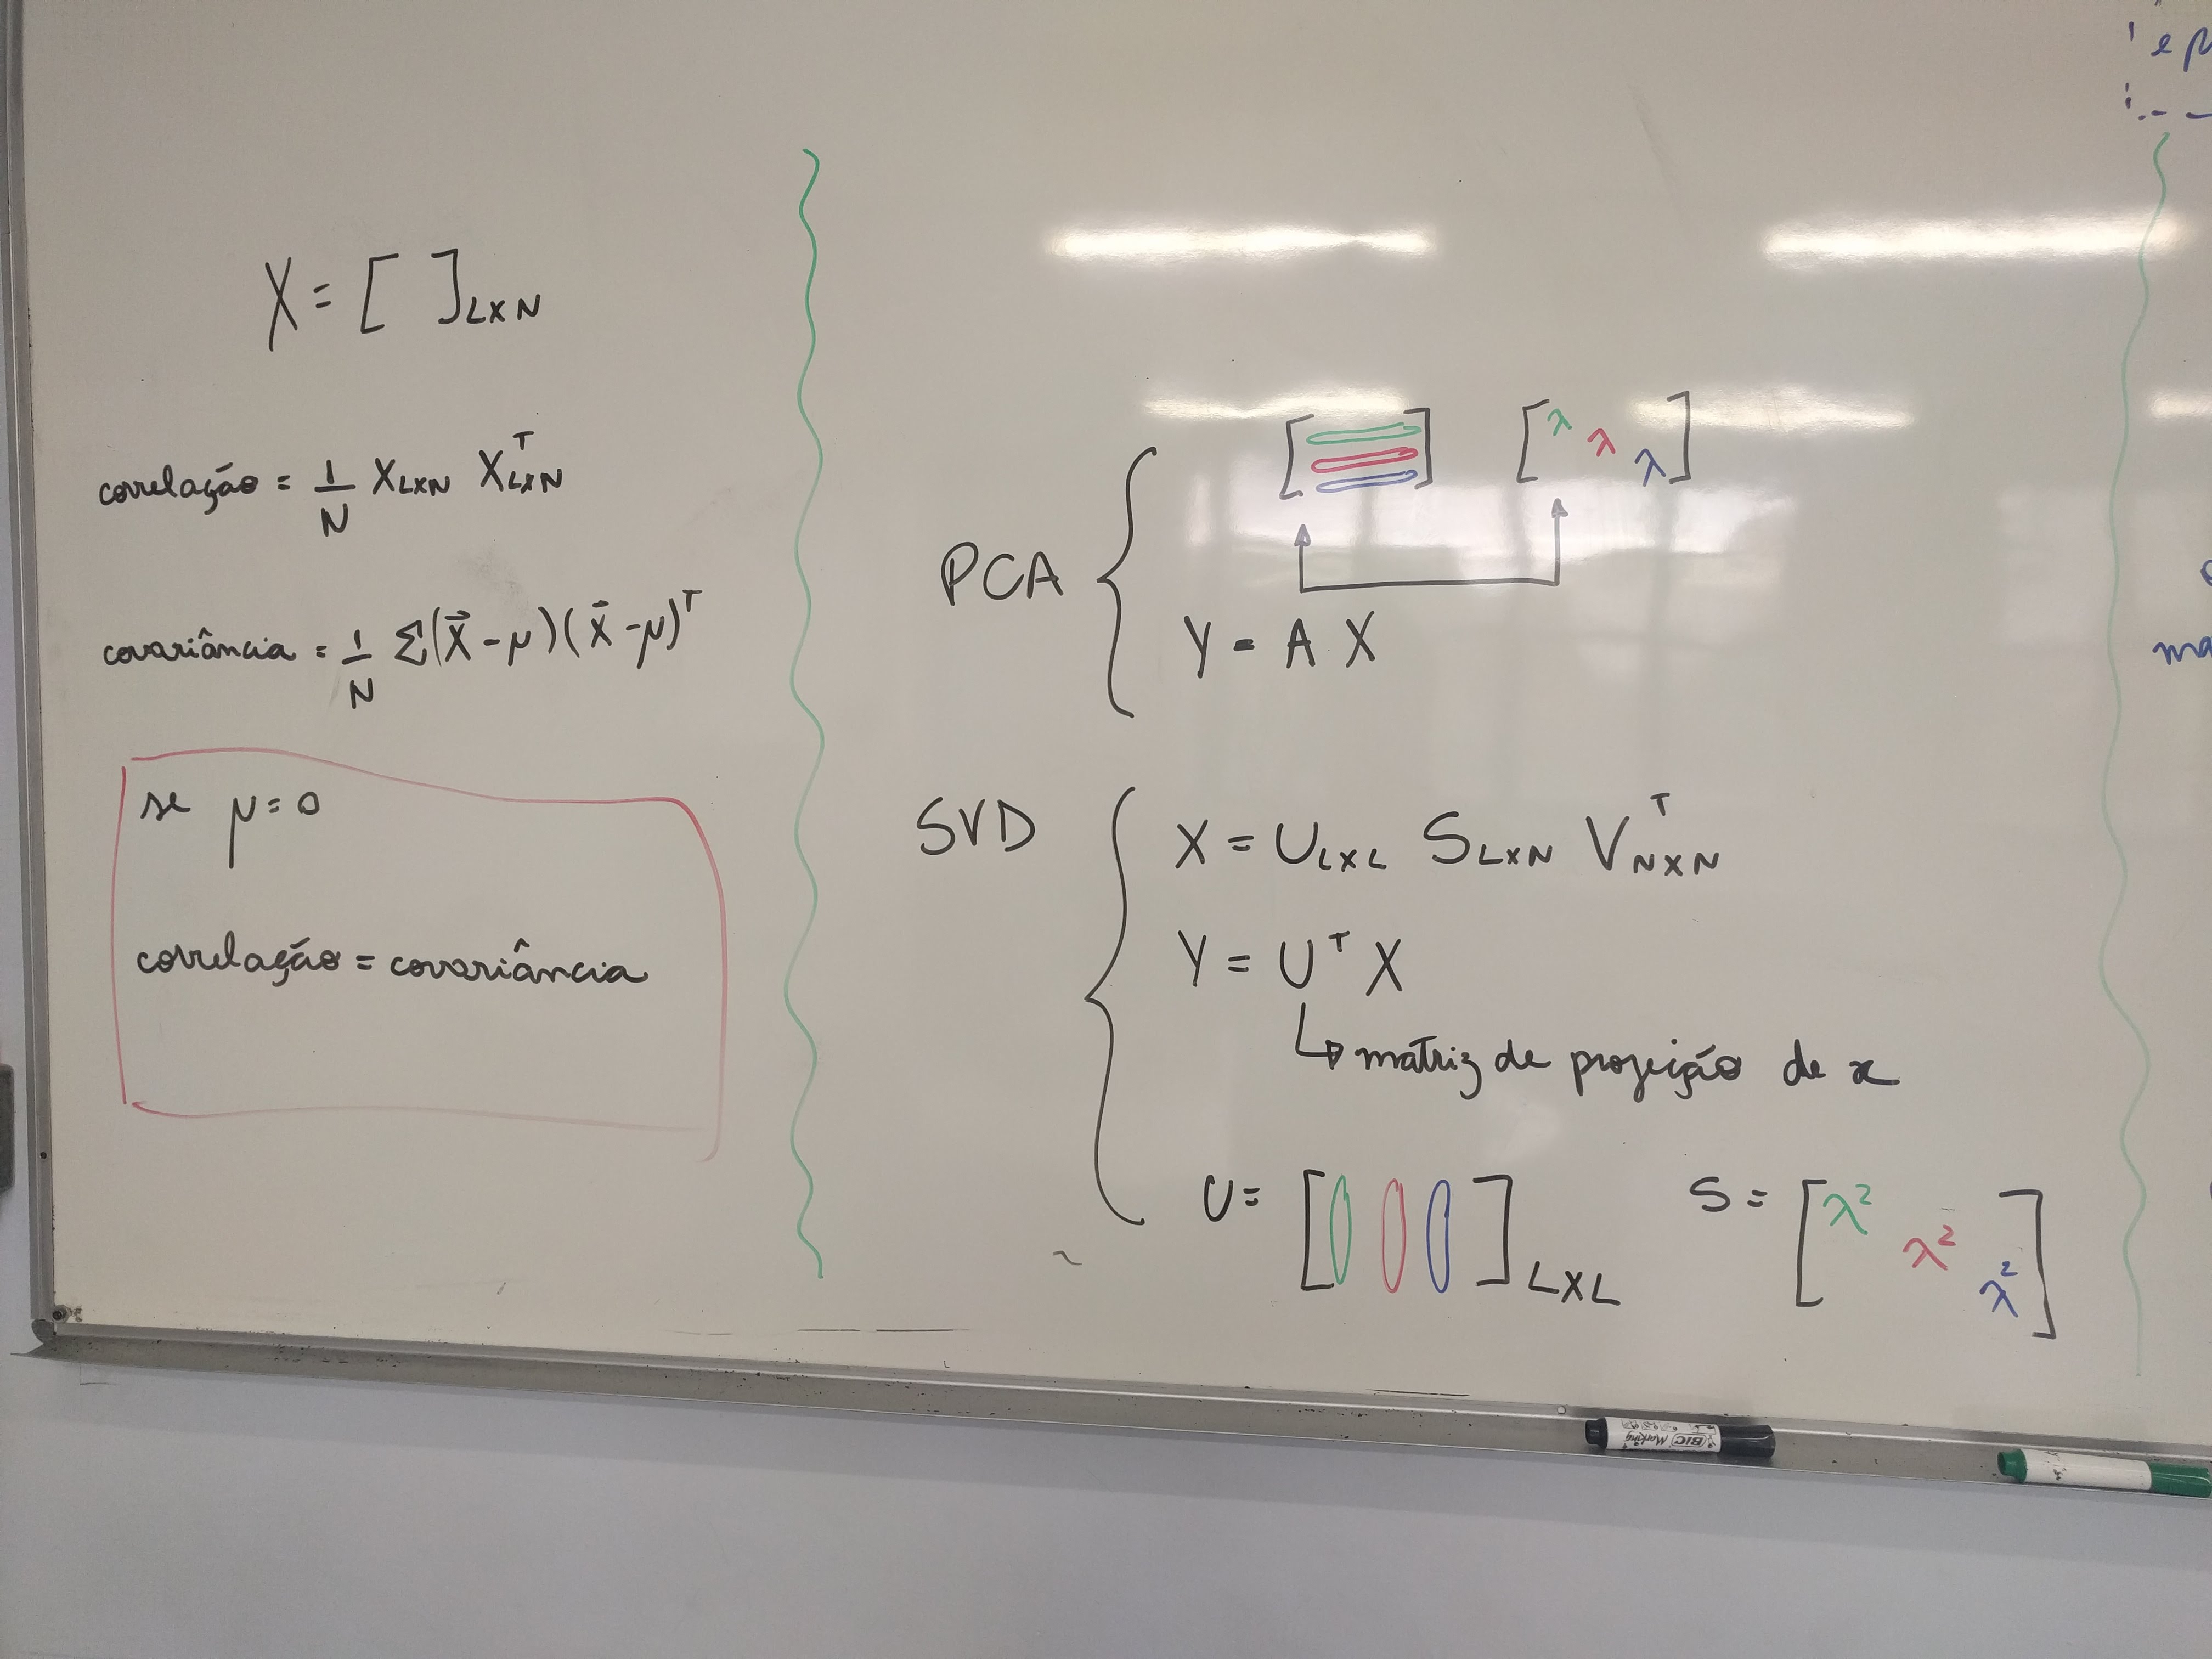 X = [ ]LXN
correlação = 1/N XLXN XLXN^T
covariância = 1/N Σ(x̄ - μ)(x̄ - μ)^T
se μ = 0
correlação = covariância
PCA
[ ] [λ λ λ]
Y = A X
SVD
X = ULXL SLXN VNXN^T
Y = U^T X
↳ matriz de projeição de x
U = [ ]LXL S = [λ² λ² λ²]
BIC Marking